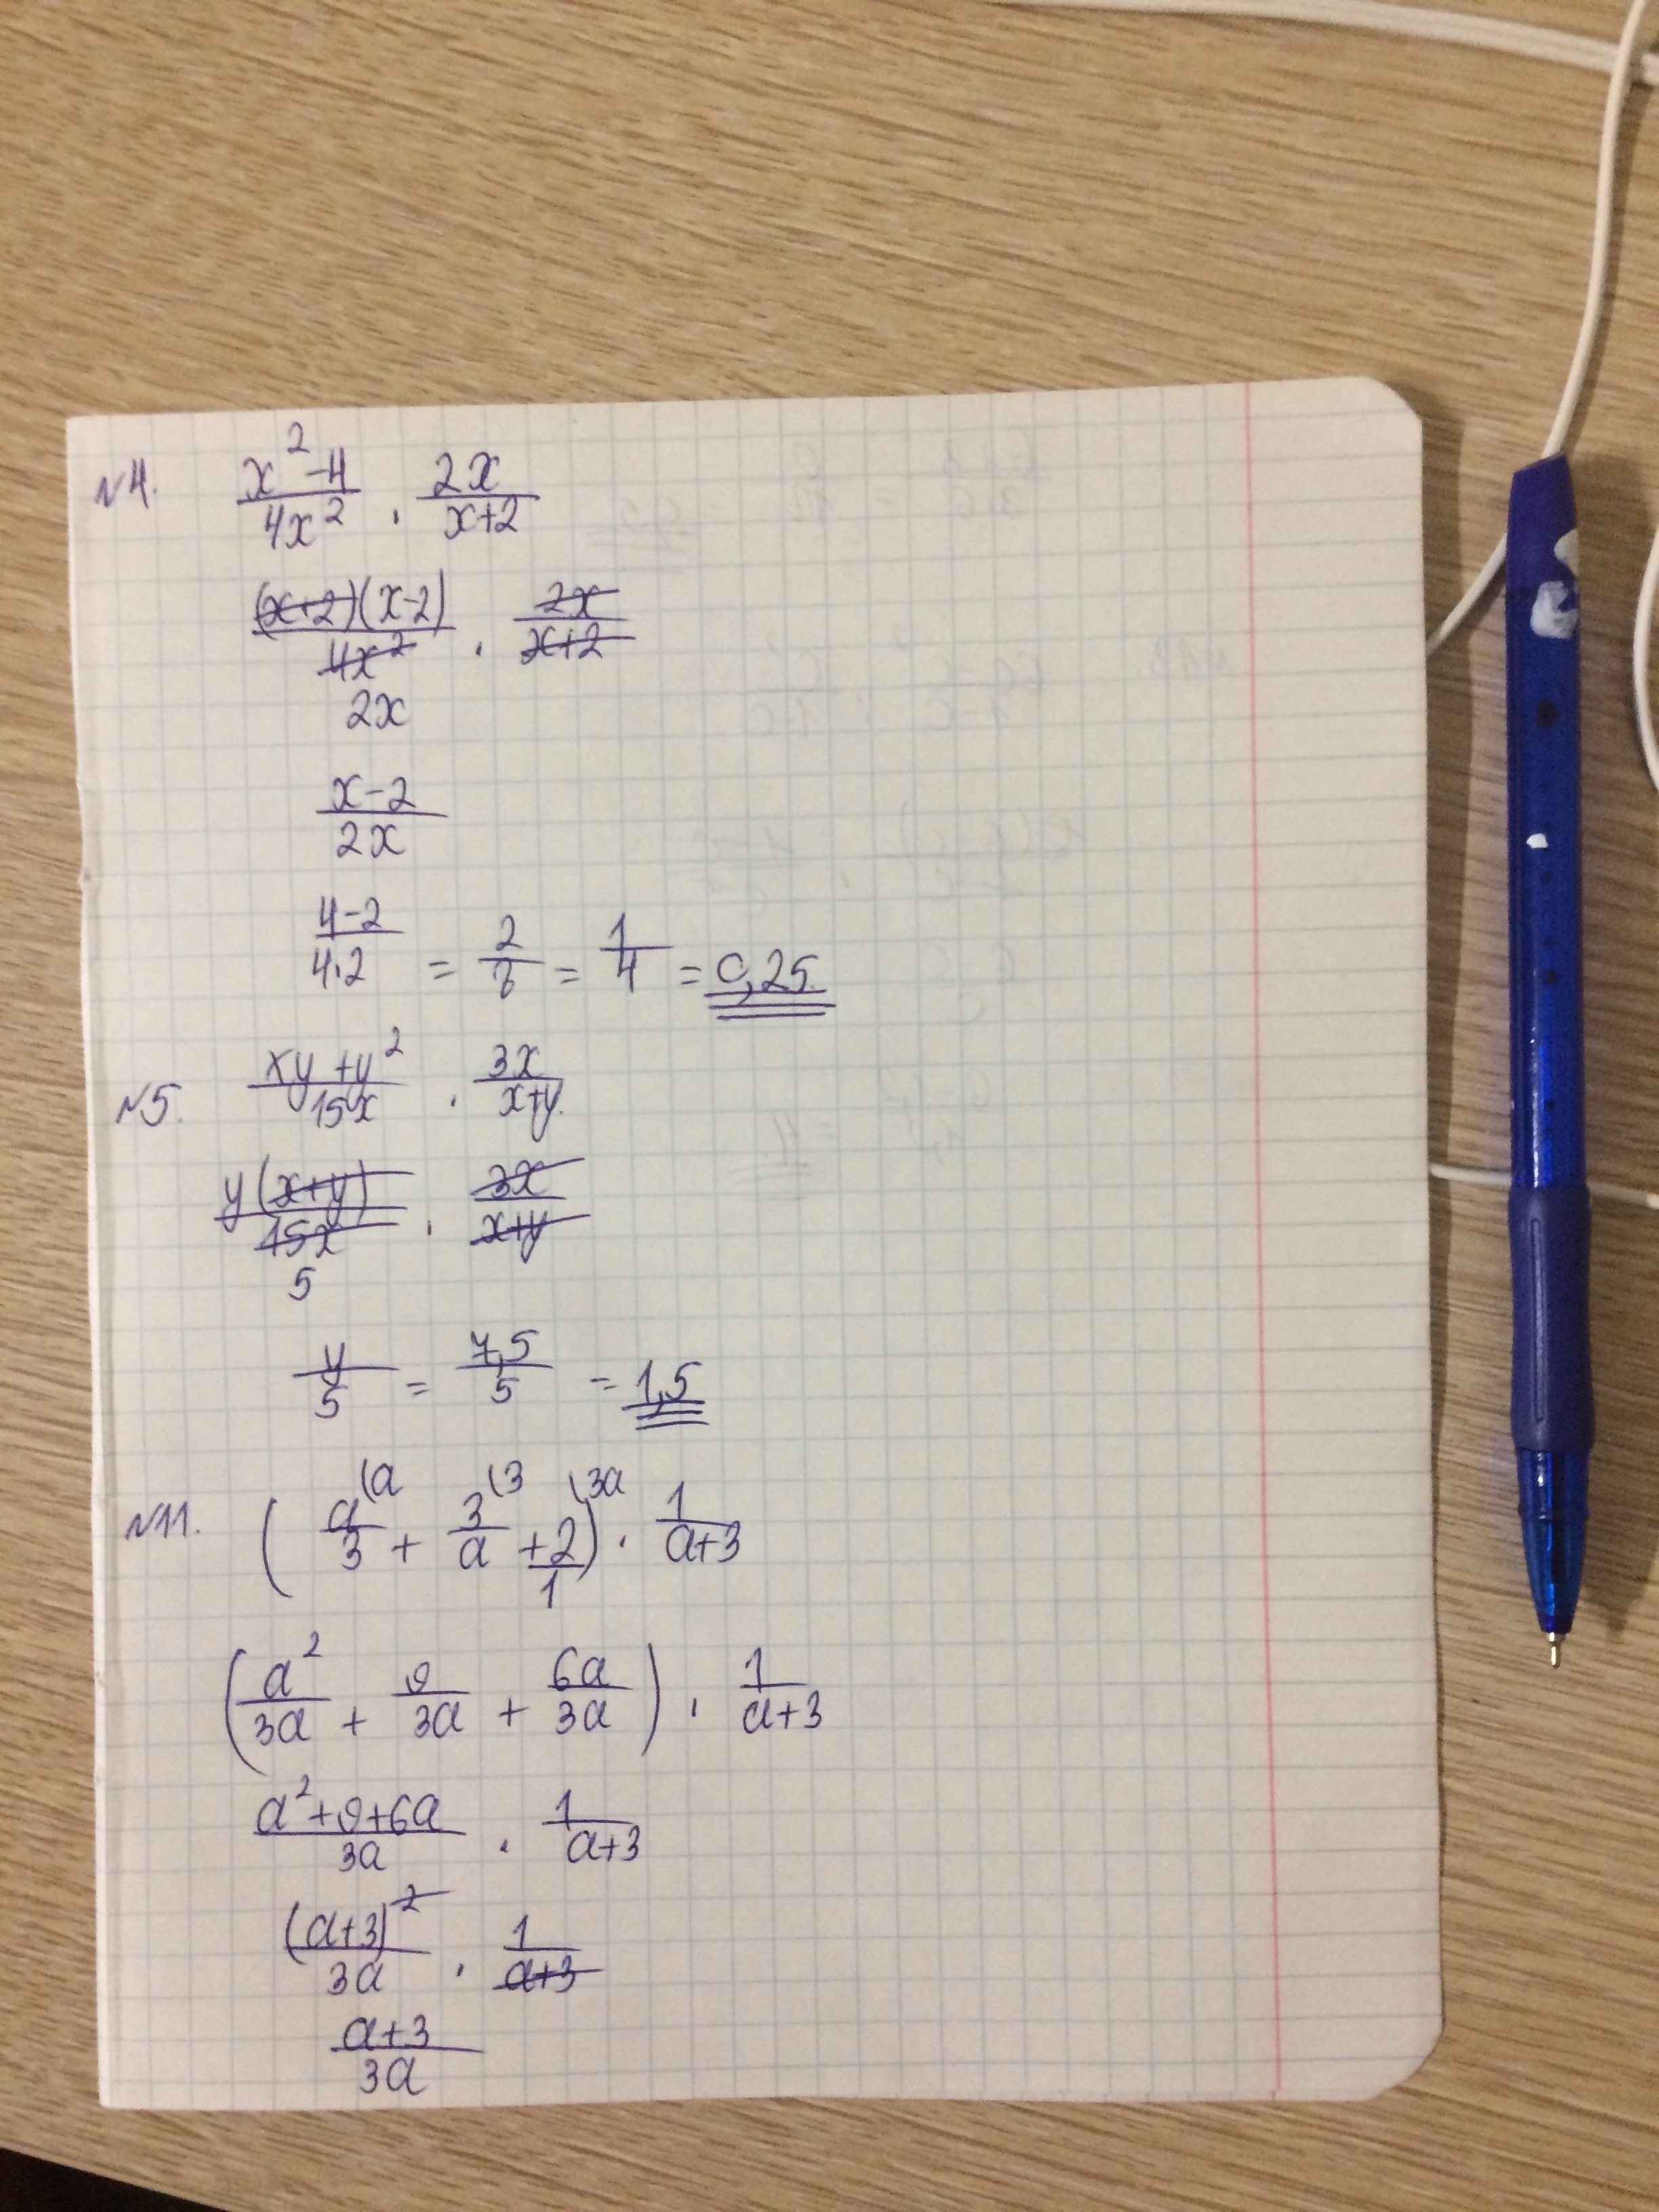 №4. (x² - 4)/(4x²) · (2x)/(x+2)
((x+2)(x-2))/(4x²) · (2x)/(x+2)
2x
(x-2)/(2x)
(4-2)/(4·2) = 2/8 = 1/4 = 0,25.
№5. (xy + y²)/(15x) · (3x)/(x+y).
(y(x+y))/(15x) · (3x)/(x+y)
5
y/5 = 7,5/5 = 1,5
№11. (a/3 (a + 3/a (3 + 2/1 (3a) · 1/(a+3)
(a²/(3a) + 9/(3a) + 6a/(3a)) · 1/(a+3)
(a² + 9 + 6a)/(3a) · 1/(a+3)
(a+3)²/(3a) · 1/(a+3)
(a+3)/(3a)